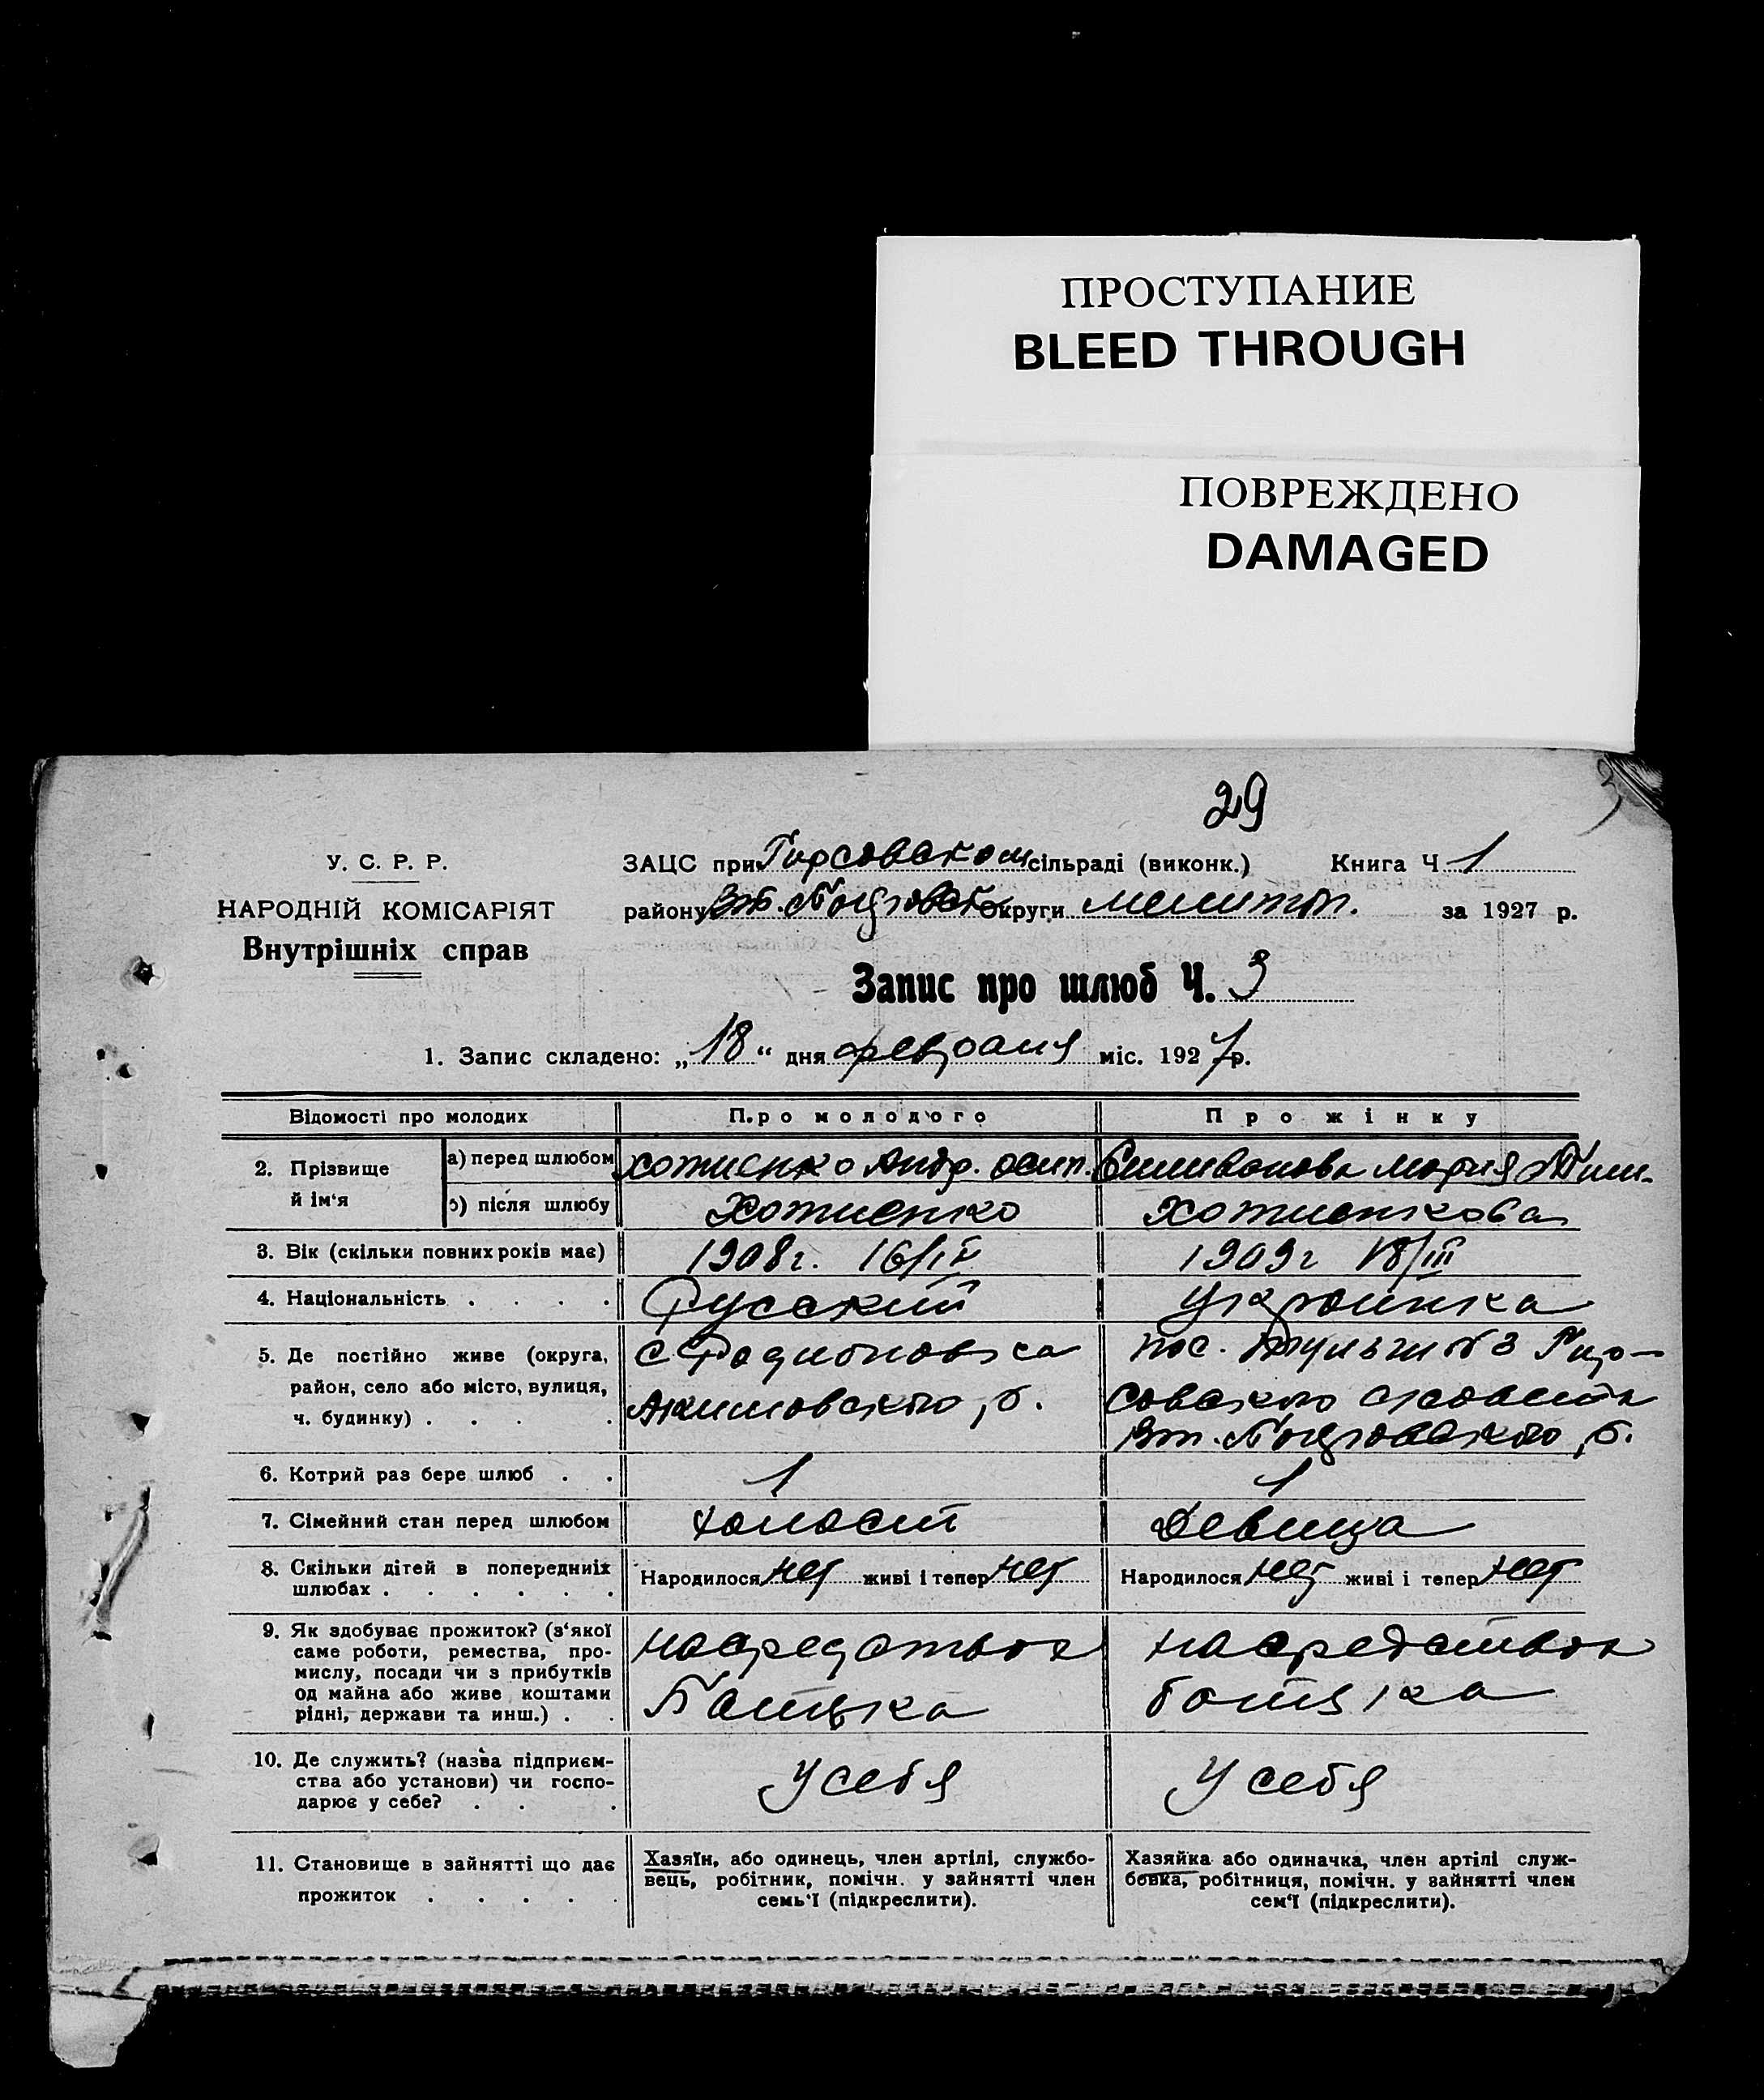 ПРОСТУПАНИЕ
BLEED THROUGH
ПОВРЕЖДЕНО
DAMAGED
29
У. С. Р. Р.
НАРОДНІЙ КОМІСАРІЯТ
Внутрішніх справ
ЗАЦС при Гирсовском сільраді (виконк.) Книга Ч. 1
району округи мелитоп. за 1927 р.
Запис про шлюб Ч. 3
1. Запис складено: „18“ дня февраля міс. 1927 р.
Відомості про молодих Про молодого Про жінку
2. Прізвище й ім‘я
а) перед шлюбом Хотиенко Андр. Осип. Селиванова Мария
б) після шлюбу Хотиенко Хотиенкова
3. Вік (скільки повних років має) 1908г. 16/IV 1909г 18/III
4. Національність . . . . Русский Украинка
5. Де постійно живе (округа, район, село або місто, вулиця, ч. будинку) . . . .
с. Родионовка
Акимовского р.
пос. Гир-
совского
р.
6. Котрий раз бере шлюб . . 1 1
7. Сімейний стан перед шлюбом холост Девица
8. Скільки дітей в попередниіх шлюбах . . . . . .
Народилося нет живі і тепер нет Народилося нет живі і тепер нет
9. Як здобуває прожиток? (з‘якої
саме роботи, ремества, про-
мислу, посади чи з прибутків
од майна або живе коштами
рідні, держави та инш.) . .
на средствах
Батька
на средствах
батька
10. Де служить? (назва підприєм-
ства або установи) чи госпо-
дарює у себе? . . .
у себя у себя
11. Становище в зайнятті що дає
прожиток . . . . .
Хазяїн, або одинець, член артілі, службо-
вець, робітник, помічн. у зайнятті член
семь‘ї (підкреслити).
Хазяйка або одиначка, член артілі служ-
бовка, робітниця, помічн. у зайнятті член
сем‘ї (підкреслити).